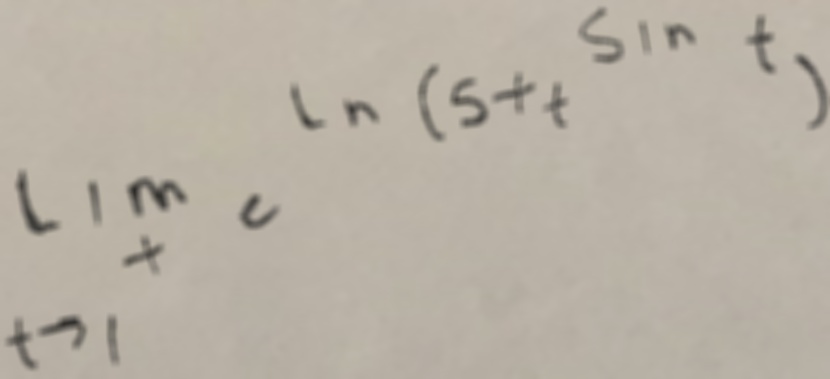 lim_{t→1^+} e^{ln(5+t^{sin t})}